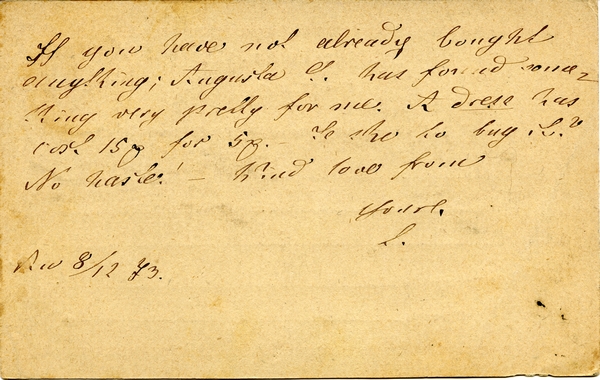 If you have not already bought
anything; Augusta S. has found some-
thing very pretty for me. A dress has
cost 15 for 5 – Is she to buy it?
No haste! – Kind love from
Yours.
S.
8/12 73.